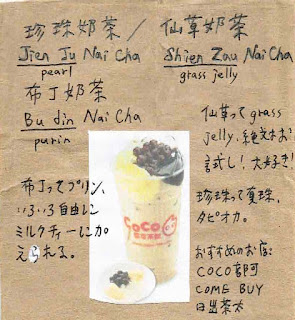 珍珠奶茶／仙草奶茶
Jien Ju Nai Cha
pearl
Shien Zau Nai Cha
grass jelly
布丁奶茶
Bu din Nai Cha
purin
布丁ってプリン、
いろいろ自由に
ミルクティーに加
えられる。
CoCo
仙草ってgrass
jelly、絶対お
試し！大好き！
珍珠って真珠、
タピオカ。
おすすめのお店:
COCO都可
COME BUY
日出茶太